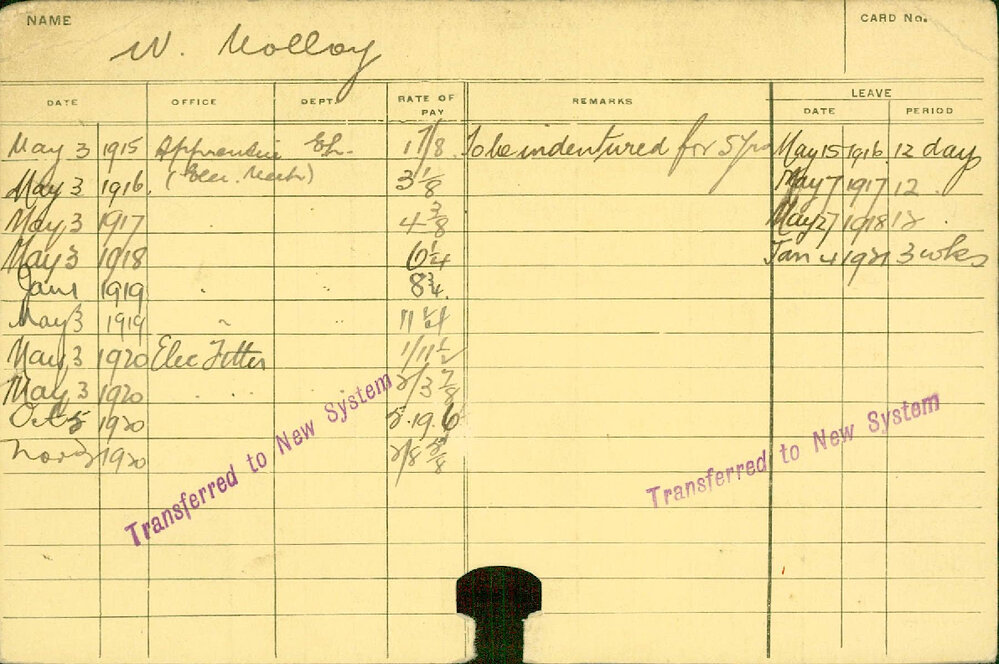 NAME
W. Molloy
CARD No.
DATE OFFICE DEPT. RATE OF PAY REMARKS LEAVE
DATE PERIOD
May 3 1915 Apprentice Eln. 1 7/8 To be indentured for 5 yrs May 15 1916. 12 days
May 3 1916. (Elec. Mech) 3 1/8 May 7 1917 12 "
May 3 1917 " 4 3/8 May 27 1918 12 "
May 3 1918 " 6 1/4 Jan 4 1921 3 wks
Jan 1 1919 " " 8 3/4
May 3 1919 " " 11 1/4
May 3 1920 Elec Fitter 1/11 1/2
May 3 1920 " " 2/3 7/8
Oct 5 1920 5.19.6
Nov 1920 2/8
Transferred to New System
Transferred to New System